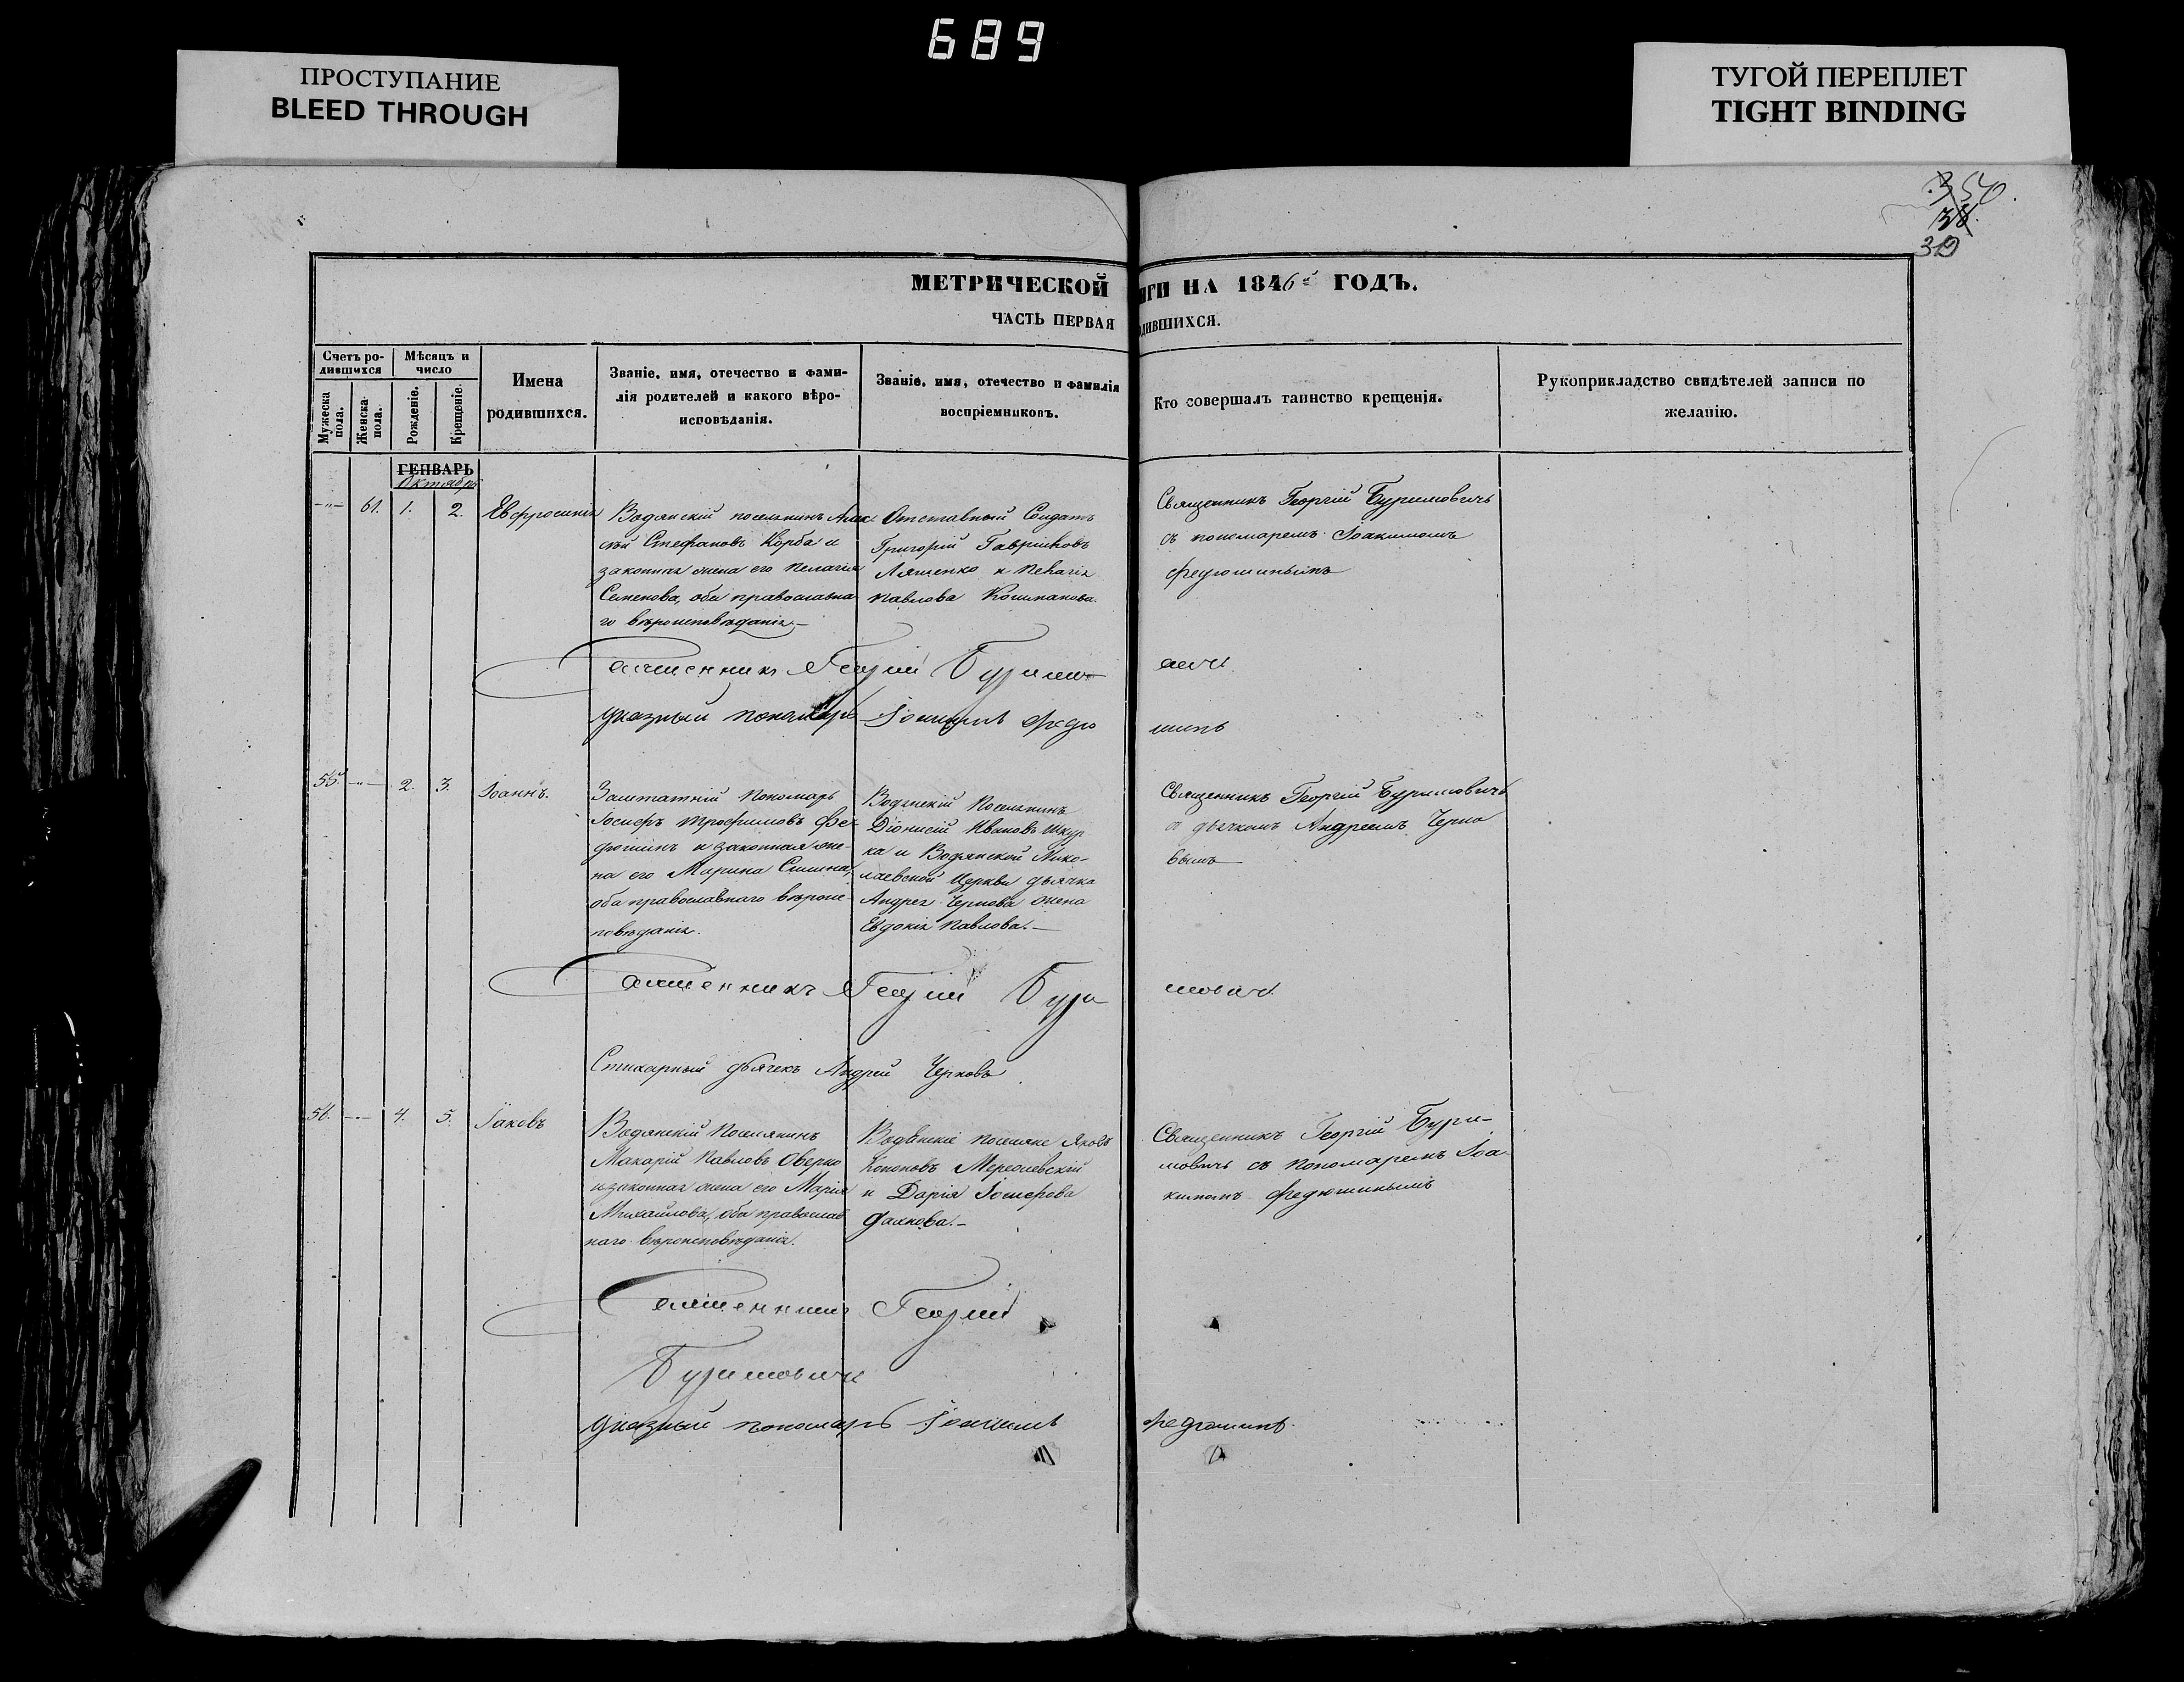 689
ПРОСТУПАНИЕ
BLEED THROUGH
ТУГОЙ ПЕРЕПЛЕТ
TIGHT BINDING
350.
38.
319
МЕТРИЧЕСКОЙ ИГИ НА 1846й ГОДЪ.
ЧАСТЬ ПЕРВАЯ ДИВШИХСЯ.
Счетъ ро-
дившихся
Мужеска пола.
Женска- пола.
Мѣсяцъ и
число
Рожденіе.
Крещеніе.
Имена
родившихся.
Званіе, имя, отечество и фами-
лія родителей и какого вѣро-
исповѣданія.
Званіе, имя, отечество и фамилія
воспріемниковъ.
Кто совершалъ таинство крещенія.
Рукоприкладство свидѣтелей записи по
желанію.
ГЕНВАРЬ
Октябрь
-"- 61. 1. 2. Евфросинія
Водянскій поселянинъ Алек
сѣй Стефановъ Корба и
законная жена его Пелагія
Семенова, оба православна
го вѣроисповѣданія.-
Отставный Солдатъ
Григорій Гавріиловъ
Ляшенко и Пелагія
Павлова
Священникъ Георгій Буримовичъ
съ пономаремъ Іоакимомъ
Федюшинымъ
Священникъ Георгій Буримовичъ
указный пономарь Іоакимъ Федю
шинъ
55. -"- 2. 3. Іоаннъ.
Заштатній Пономарь
Іосифъ Трофимовъ Фе-
дюшинъ и законная же-
на его Марина
оба православнаго вѣроис-
повѣданія.
Водянскій Поселянинъ
Діонисій Ивановъ Шкур
ка и Водянской Нико-
лаевской Церкви дьячка
Андрея Чернова жена
Евдокія Павлова.-
Священникъ Георгій Буримовичъ
съ дьячкомъ Андреемъ Черно
вымъ
Священникъ Георгій Бури
мовичъ
Стихарный дьячекъ Андрей Черновъ
56. -"- 4. 5. Іаковъ
Водянскій Поселянинъ
Макарій Павловъ Оверко
и законная жена его Марія
Михайлова, оба православ
наго вѣроисповѣданія.
Водянскіе поселяне Яковъ
Кононовъ
и Дарія Іосифова
Священникъ Георгій Бури-
мовичъ съ Пономаремъ Іоа-
кимомъ Федюшинымъ
Священникъ Георгій
Буримовичъ
указный пономарь Іоакимъ Федюшинъ.